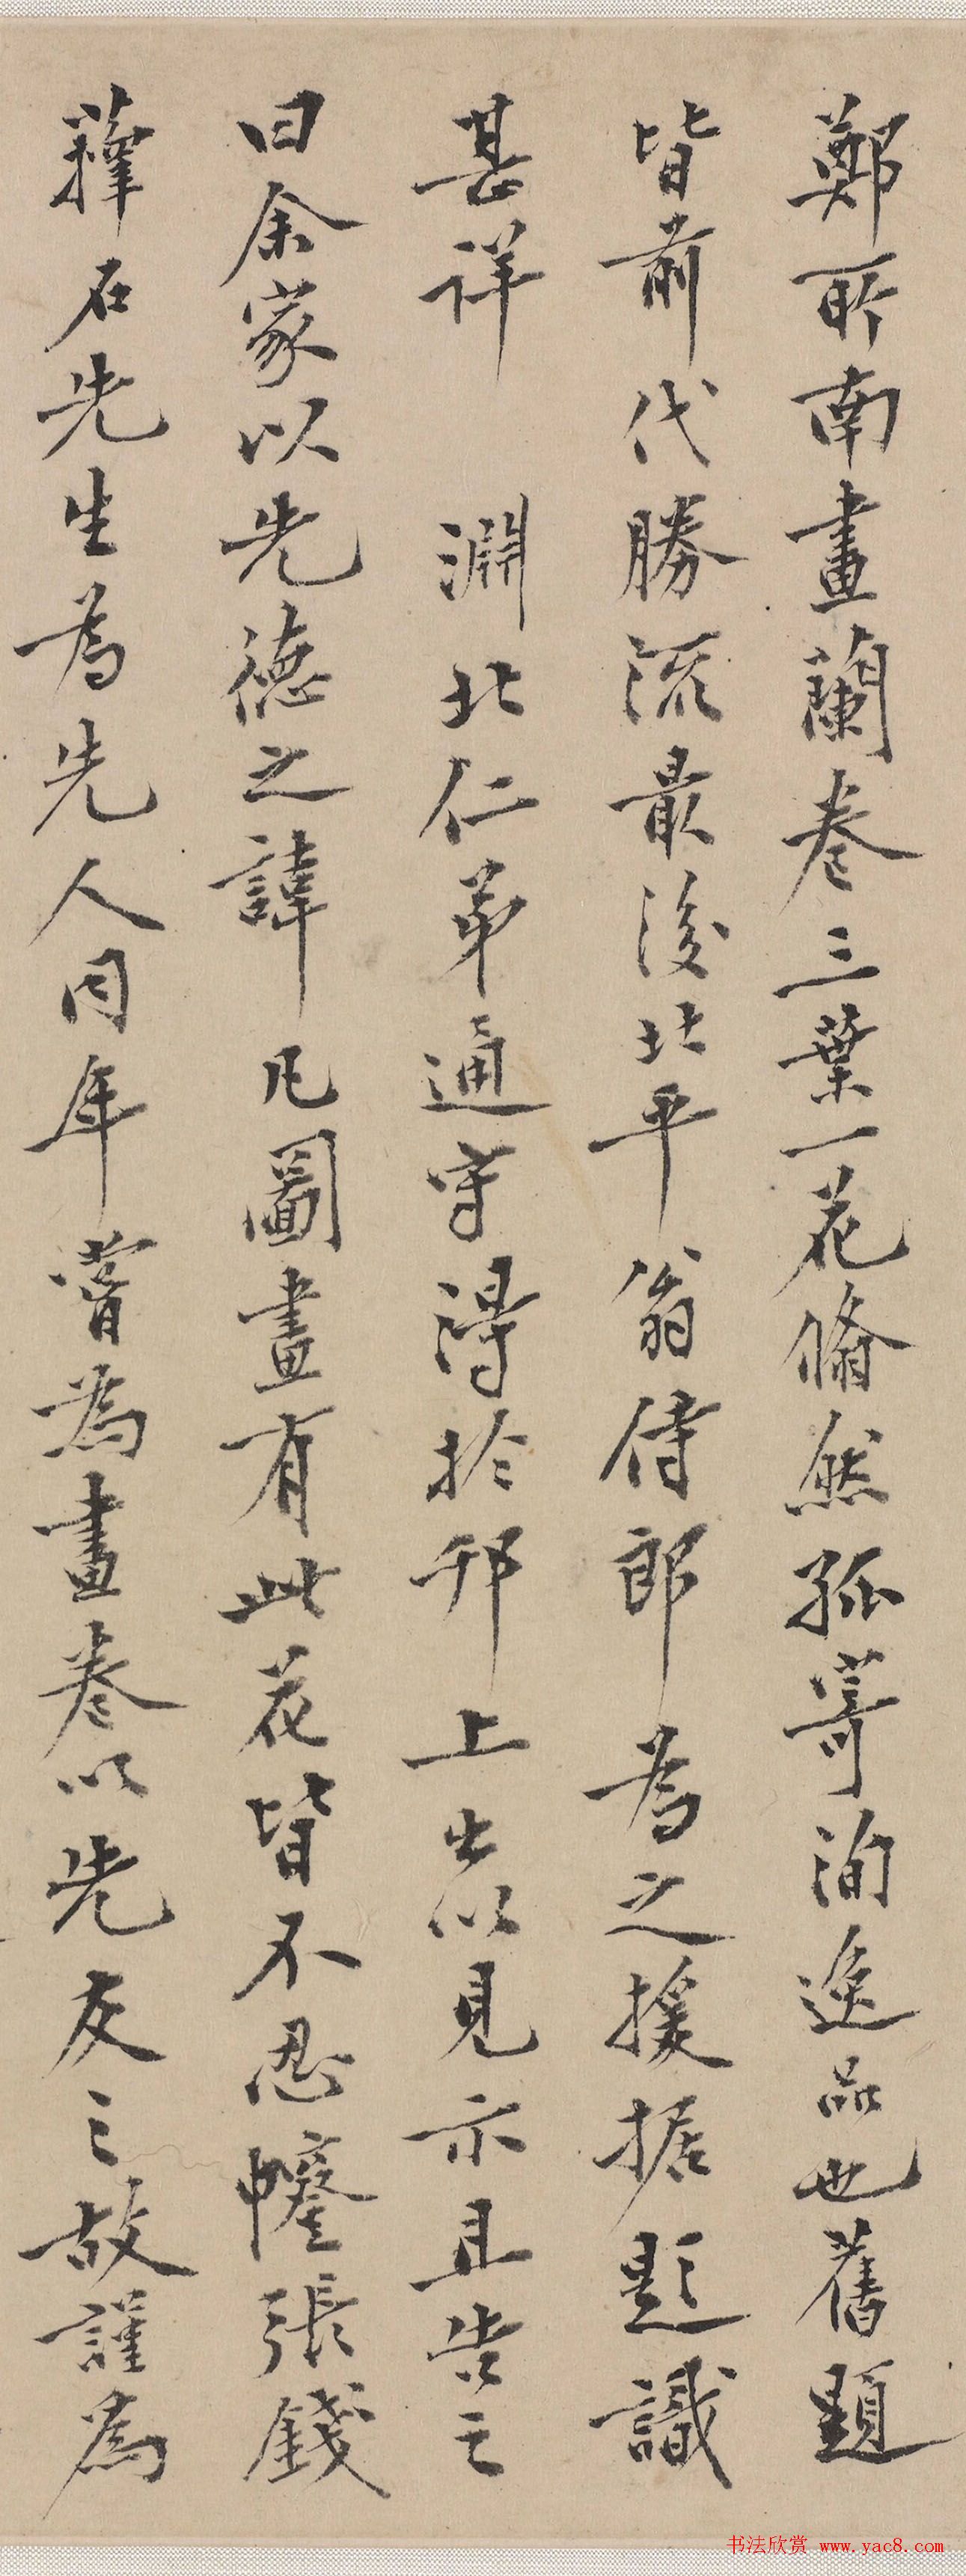 鄭所南畫蘭卷三葉一花翛然孤寄洵逸品也舊題
皆前代勝流最後北平翁侍郎為之援据題識
甚詳 淵北仁弟通守得於邗上出以見示且告之
曰余家以先德之諱凡圖畫有此花皆不忍幢張錢
蘀石先生為先人同年嘗為畫卷以先友之故謹為
书法欣赏 www.yac8.com